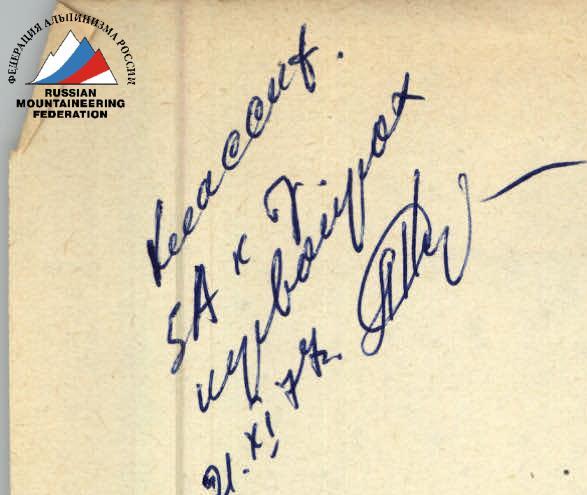 ФЕДЕРАЦИЯ АЛЬПИНИЗМА РОССИИ
RUSSIAN
MOUNTAINEERING
FEDERATION
классиф.
5А к т.
21.XI 77г.